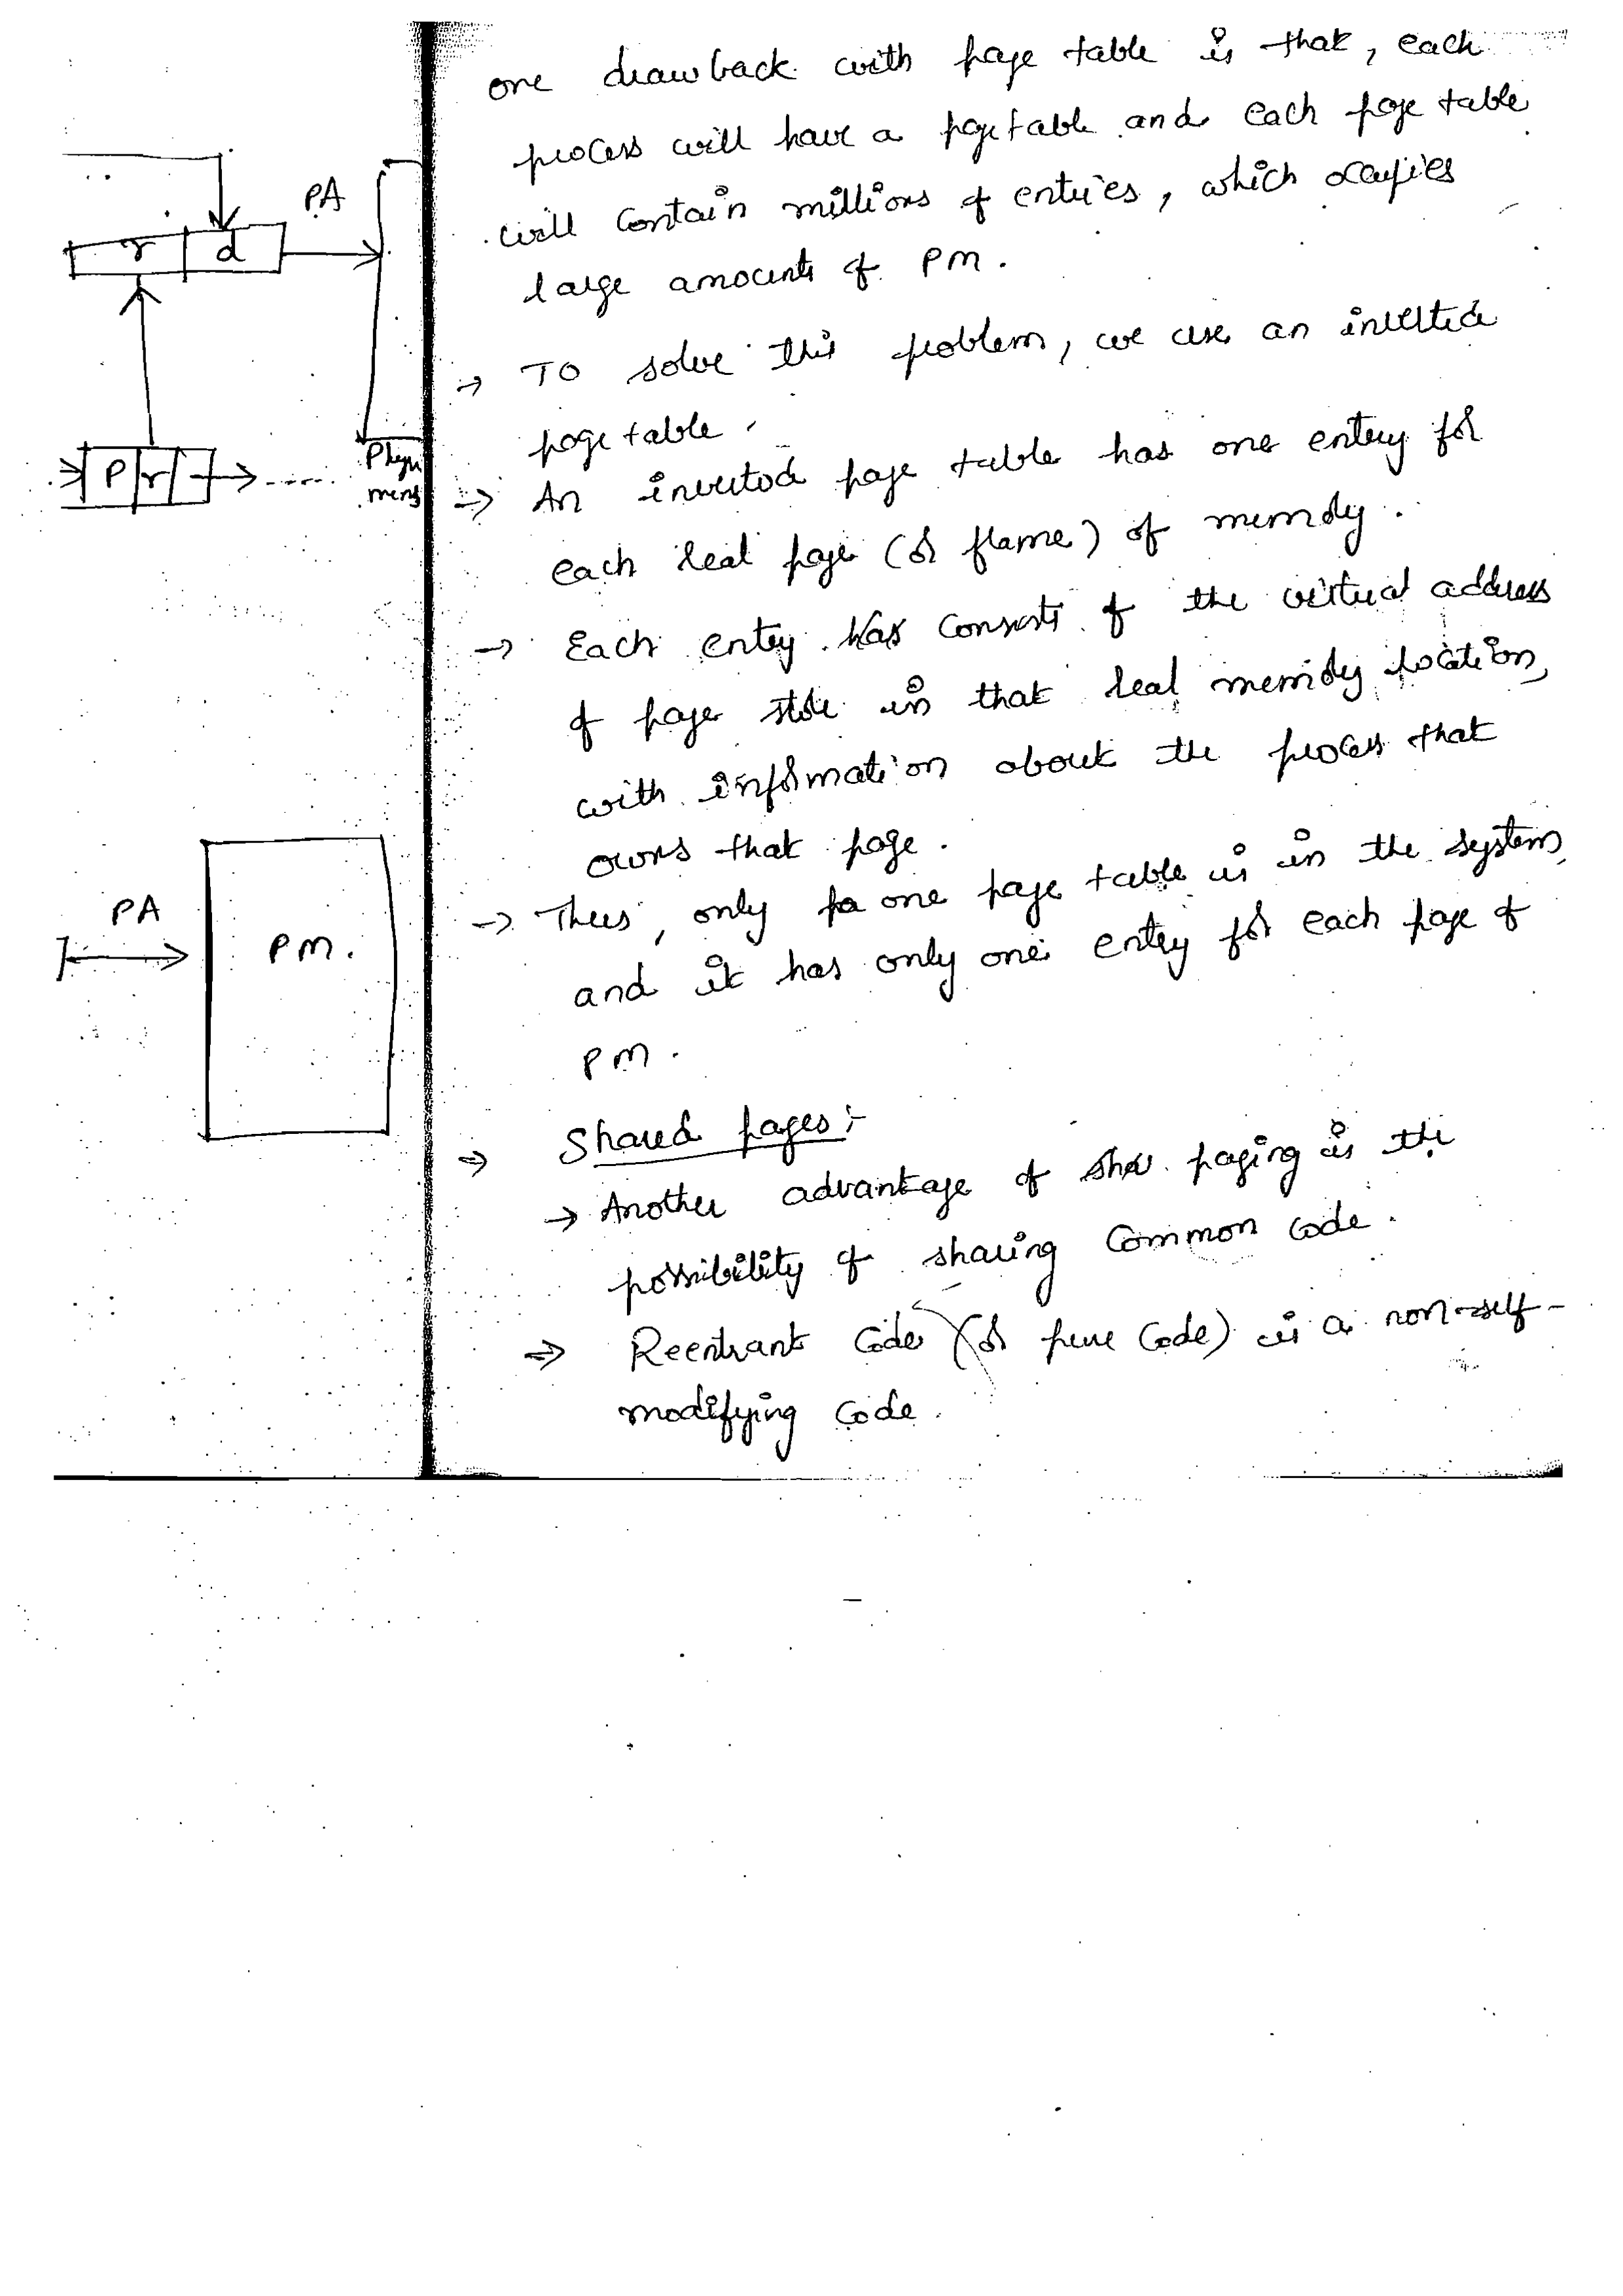 one drawback with page table is that, each
process will have a page table and each page table
will contain millions of entries, which occupies
large amounts of PM.
→ TO solve this problem, we use an inverted
page table.
→ An inverted page table has one entry for
each real page (or frame) of memory.
→ Each entry has consists of the virtual address
of page store in that real memory location,
with information about the process that
owns that page.
→ Thus, only pa one page table is in the system,
and it has only one entry for each page of
PM.
⇒ Shared pages:-
→ Another advantage of sha paging is the
possibility of sharing common code.
⇒ Reentrant code (or pure code) is a non-self-
modifying code.
PA
r d
P r
Phys
mem
PA
PM.